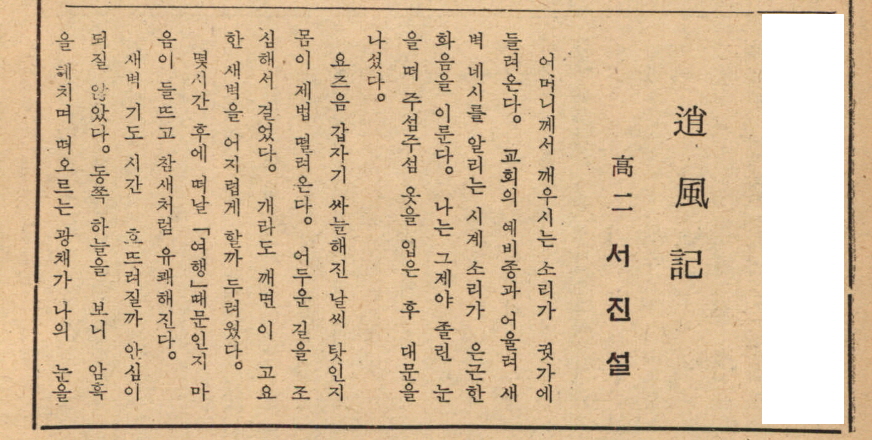 逍風記
高二 서진설
어머니께서 깨우시는 소리가 귓가에
들려온다. 교회의 예비종과 어울려 새
벽 네시를 알리는 시계 소리가 은근한
화음을 이룬다. 나는 그제야 졸린 눈
을 떠 주섬주섬 옷을 입은 후 대문을
나섰다.
요즈음 갑자기 싸늘해진 날씨 탓인지
몸이 제법 떨려온다. 어두운 길을 조
심해서 걸었다. 개라도 깨면 이 고요
한 새벽을 어지럽게 할까 두려웠다.
몇시간 후에 떠날 「여행」때문인지 마
음이 들뜨고 참새처럼 유쾌해진다.
새벽 기도 시간 흐뜨려질까 안심이
되질 않았다. 동쪽 하늘을 보니 암흑
을 헤치며 떠오르는 광채가 나의 눈을